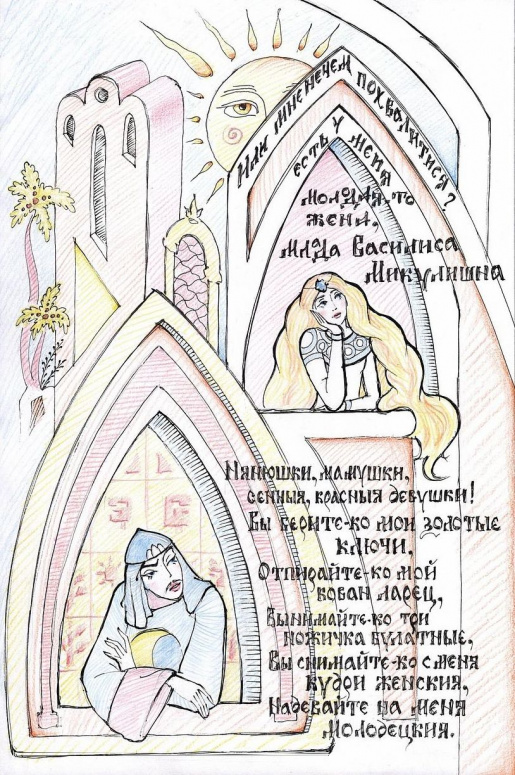 Или мне нечем похвалитися?
есть у меня
молодая-то
жена,
млада Василиса
Микулишна
Нянюшки, мамушки,
сенныя, красныя девушки!
Вы берите-ко мои золотые
ключи,
Отпирайте-ко мой
кован ларец,
Вынимайте-ко три
ножичка булатные,
Вы снимайте-ко с меня
кудои женския,
Надевайте на меня
молодецкия.